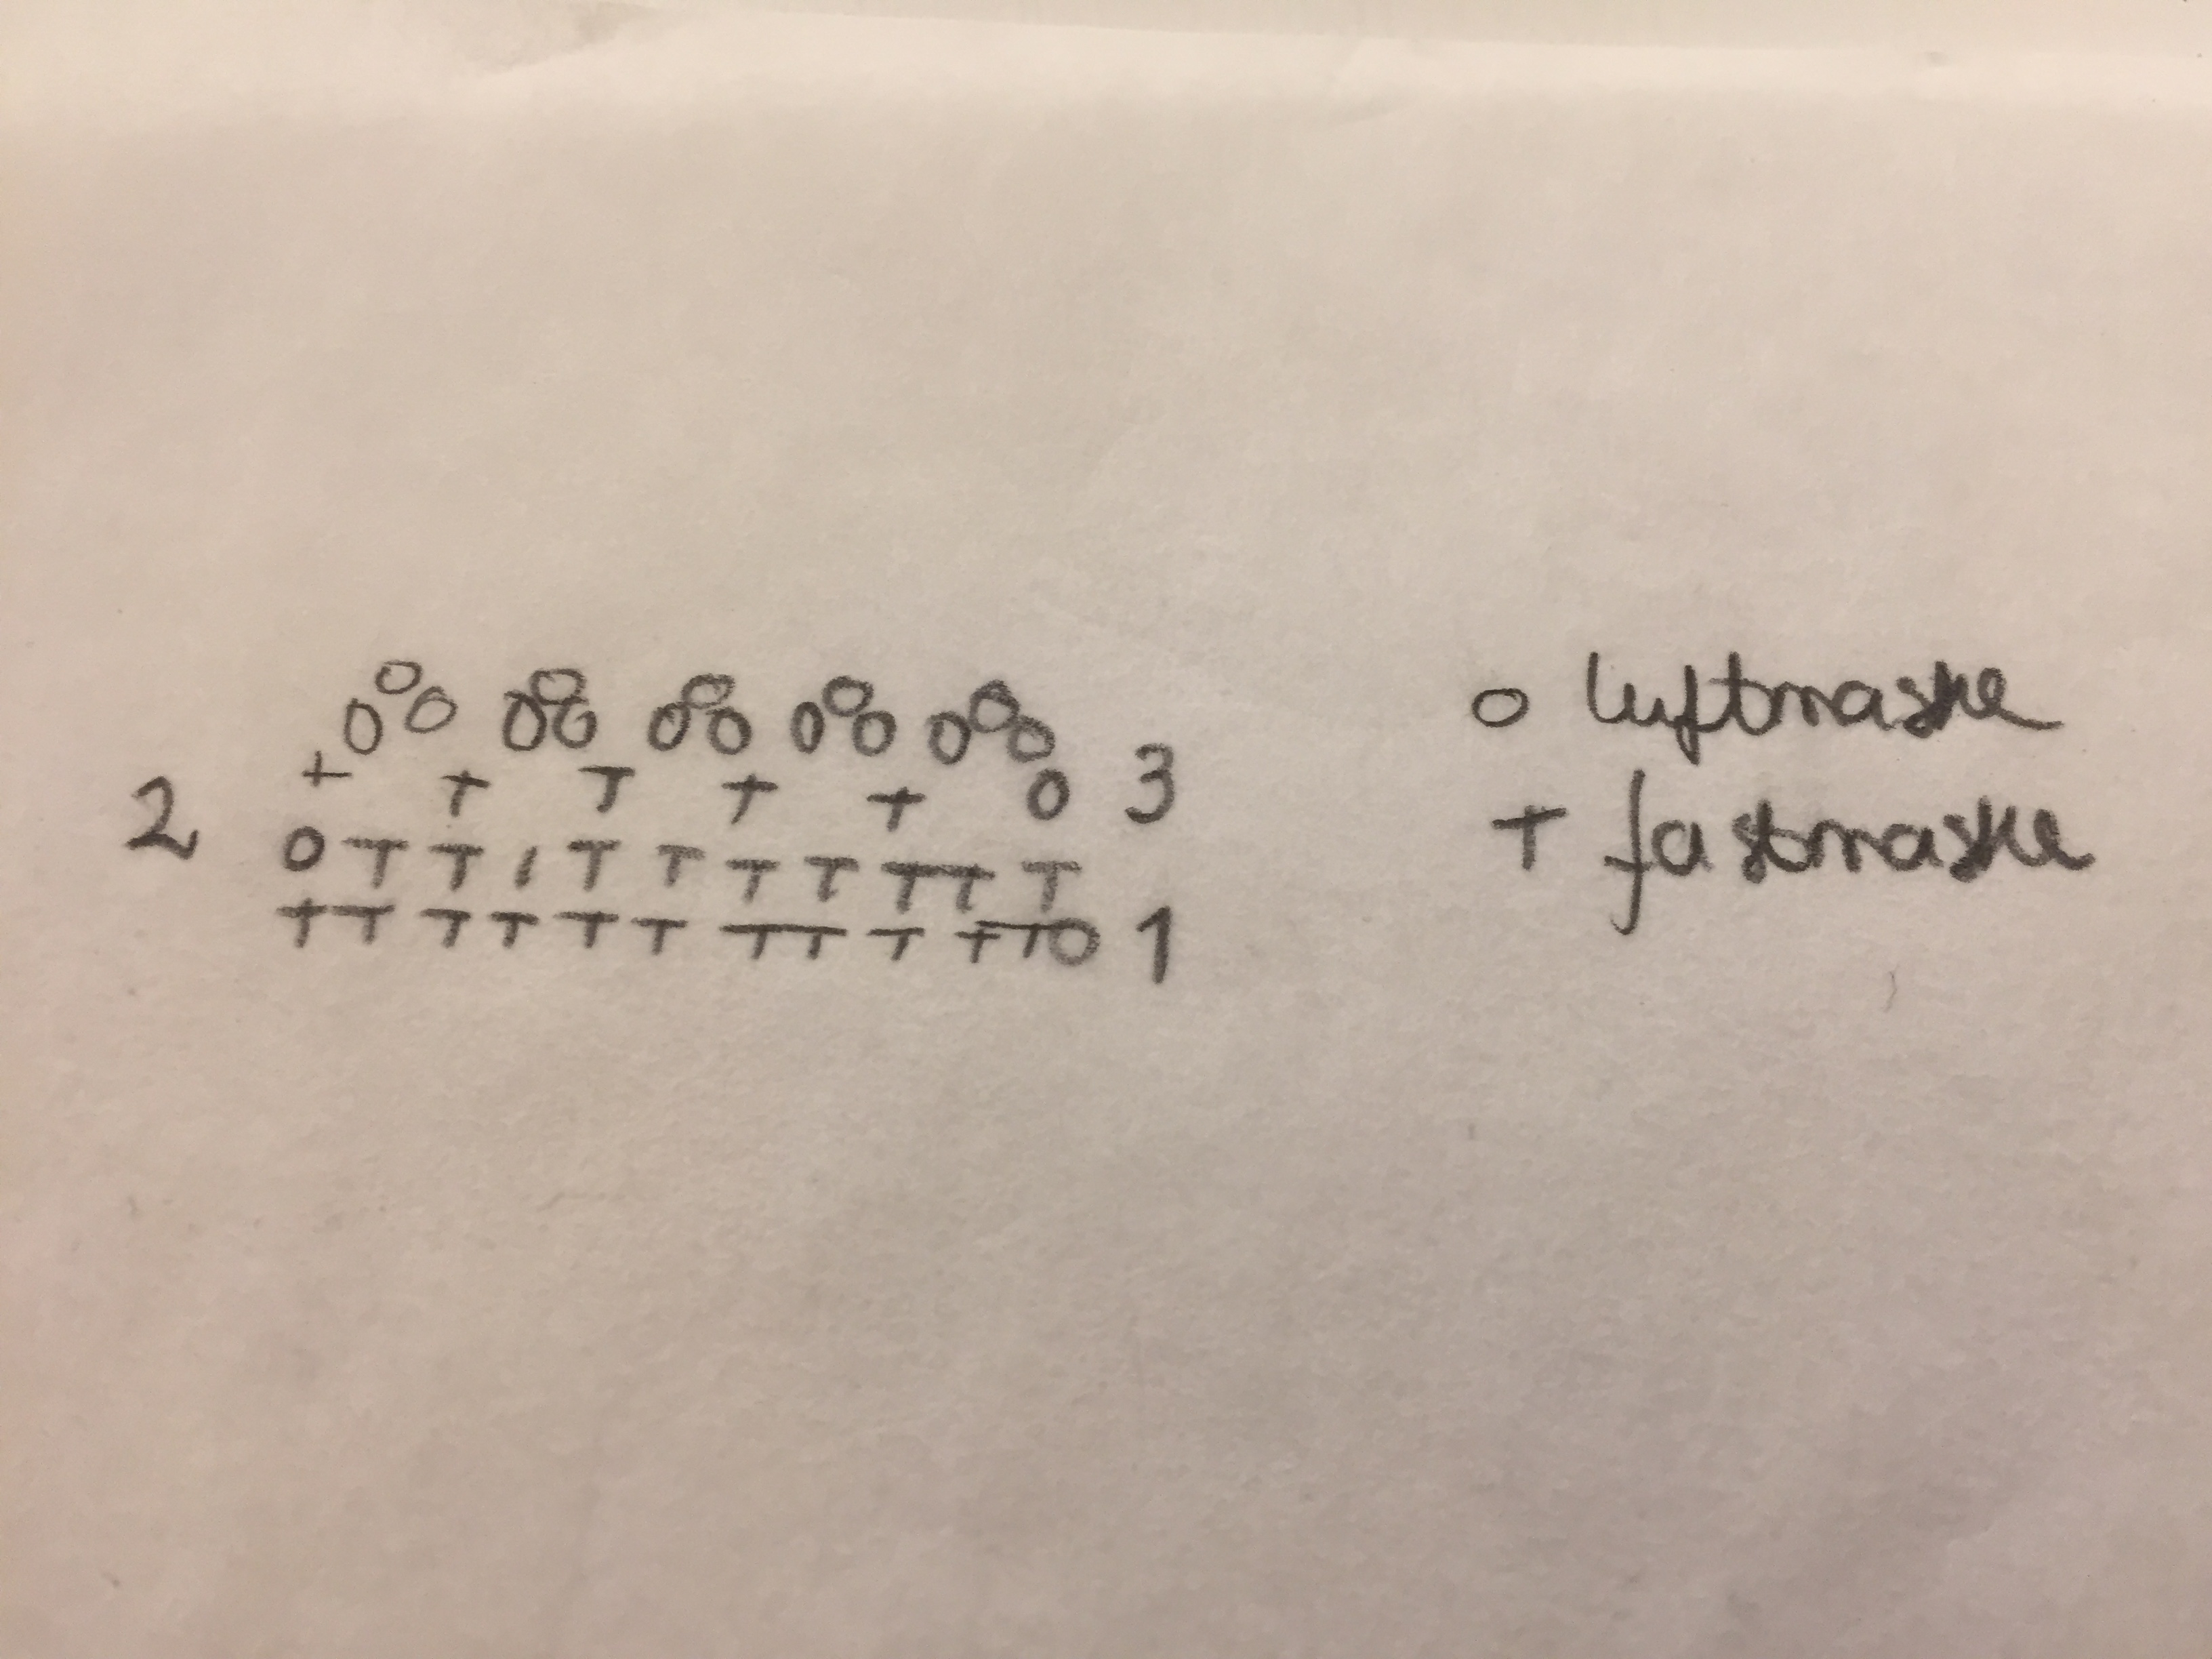 o luftmaske
+ fastmaske
3
2
1